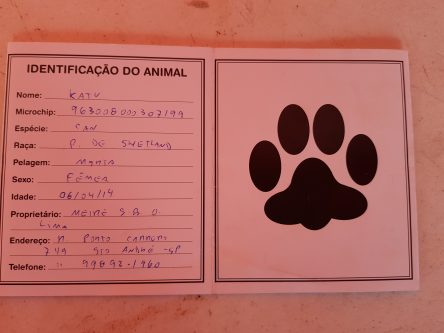 IDENTIFICAÇÃO DO ANIMAL
Nome: KATY
Microchip: 963008000307199
Espécie: CAN
Raça: P. DE SHETLAND
Pelagem: MANTA
Sexo: FÊMEA
Idade: 06/04/14
Proprietário: MEIRE S B D.
LIMA
Endereço: R. PORTO
749 STO ANDRÉ - SP
Telefone: 99892-1960